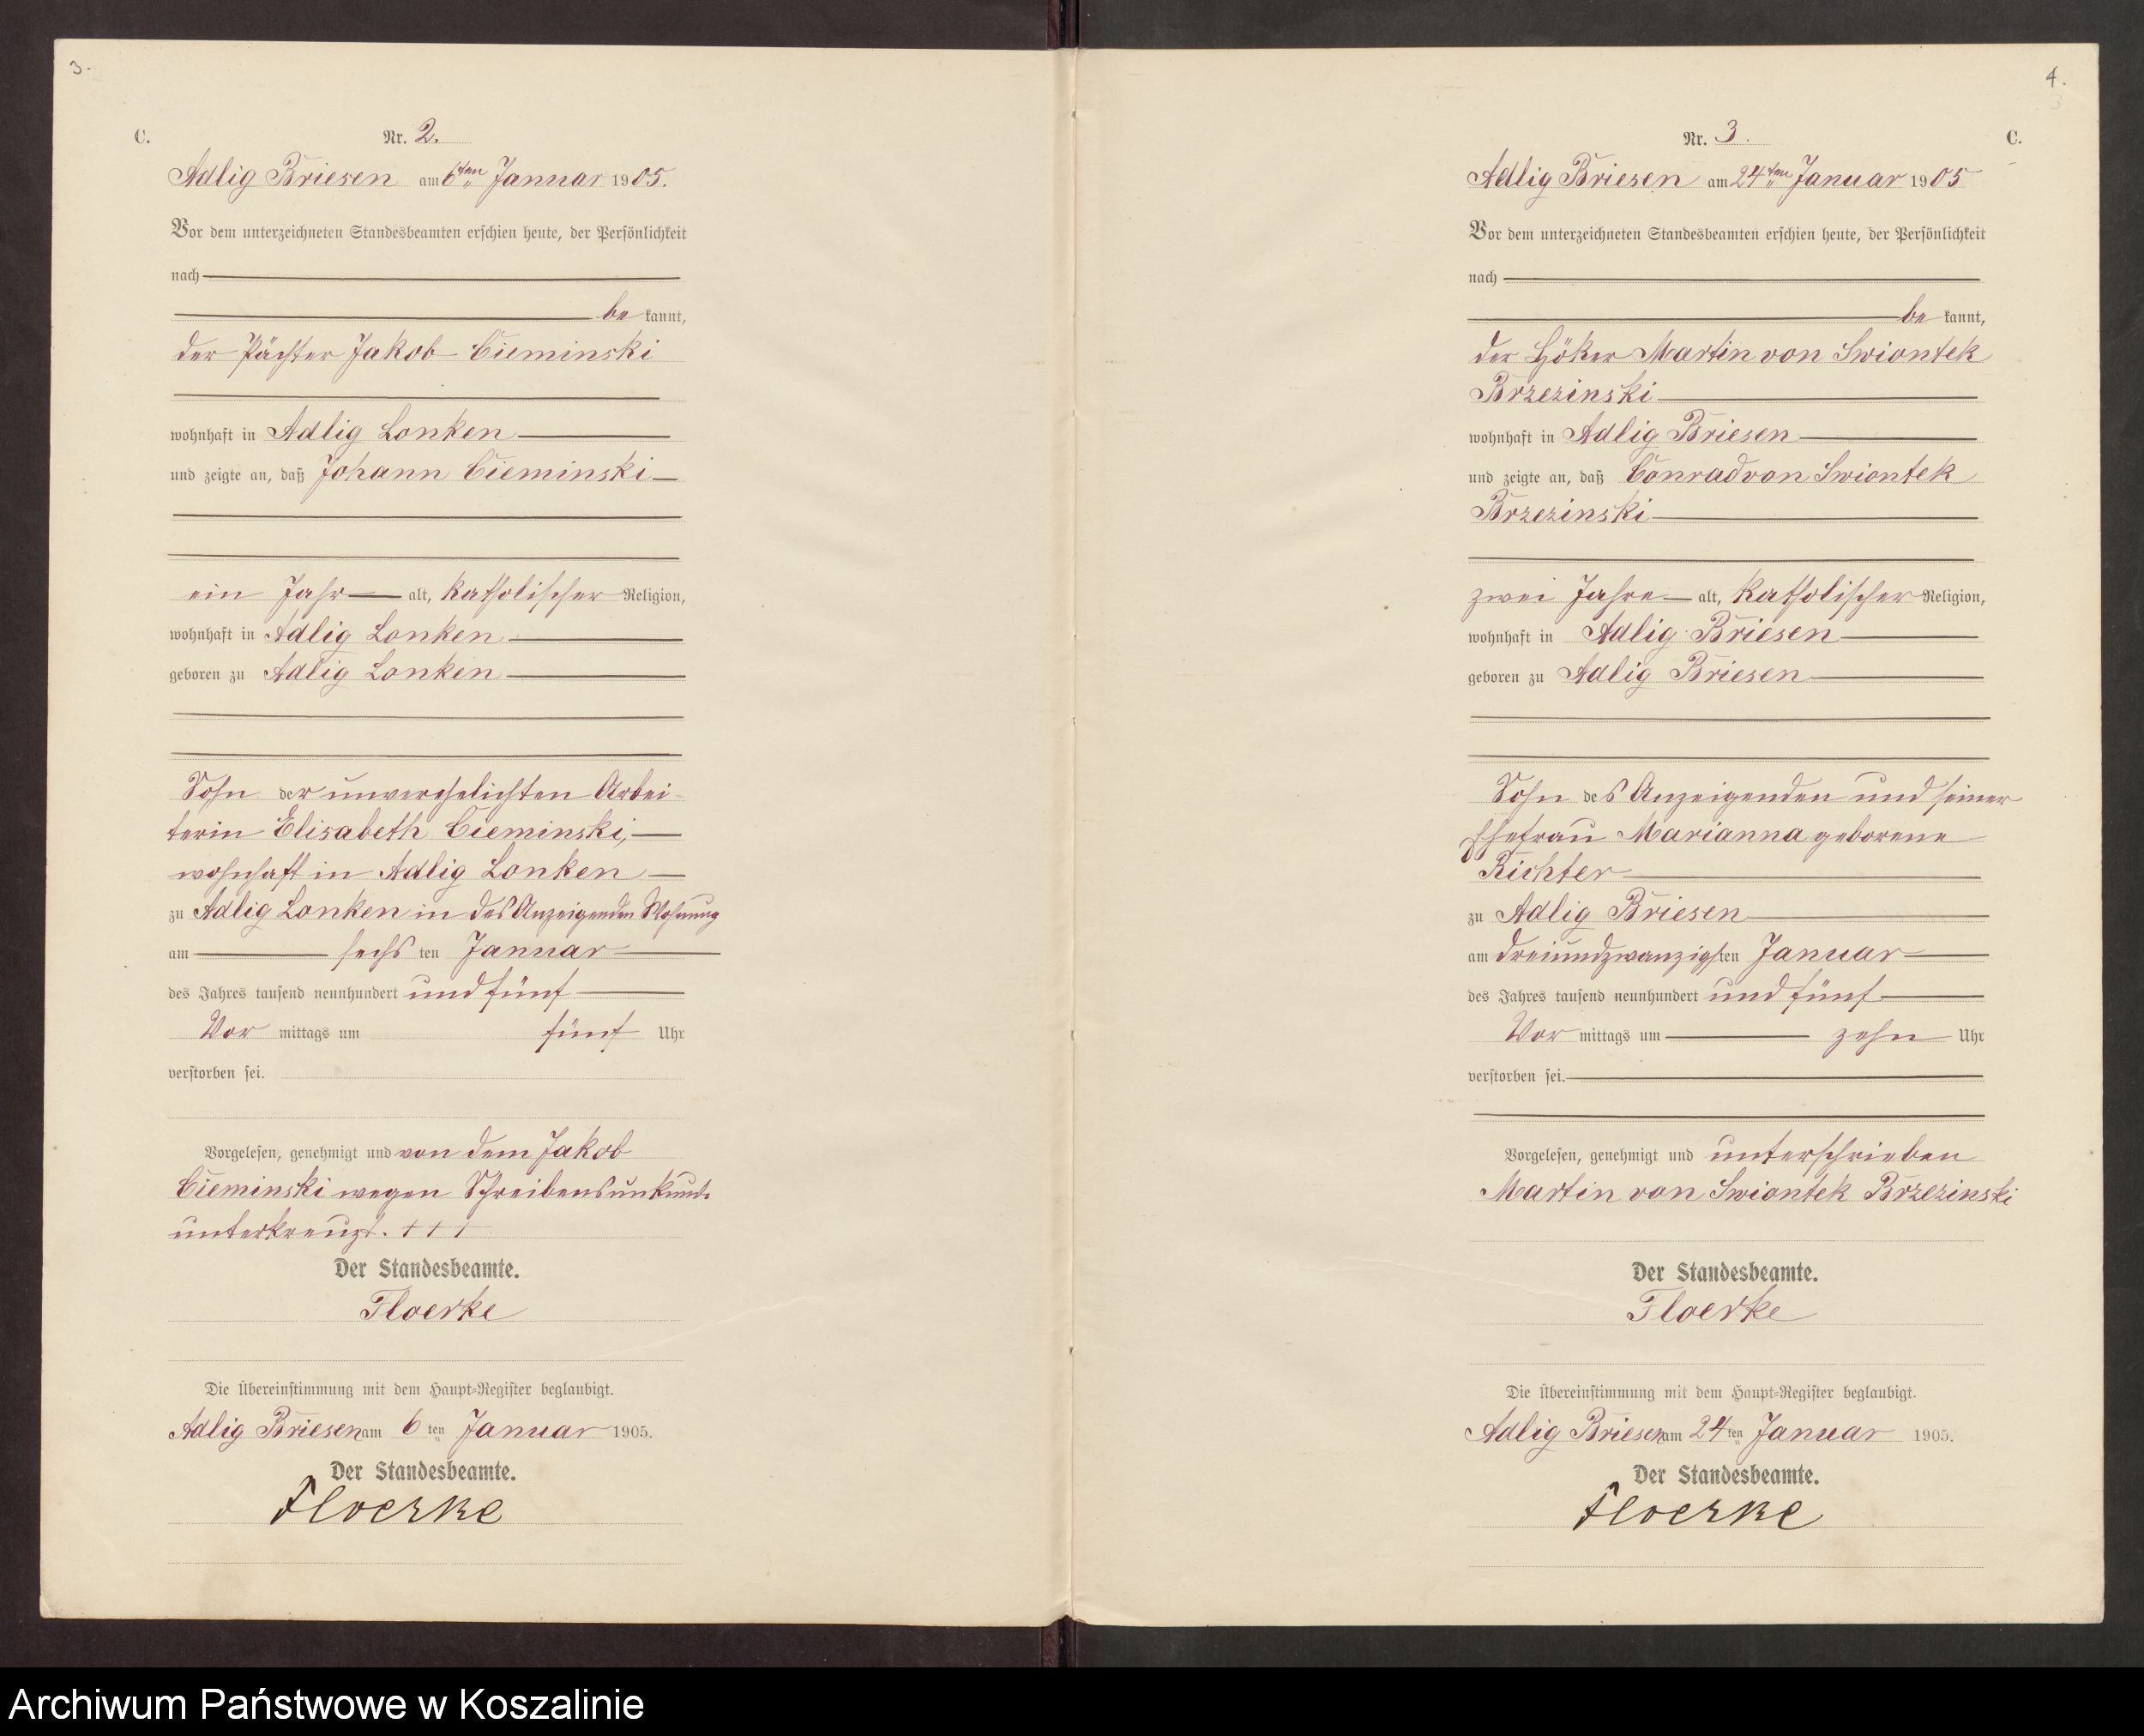 3.
C.
Nr. 2.
Adlig Briesen am 6ten Januar 1905.
Vor dem unterzeichneten Standesbeamten erschien heute, der Persönlichkeit
nach
be kannt,
der Pächter Jakob Cieminski
wohnhaft in Adlig Lonken
und zeigte an, daß Johann Cieminski
ein Jahr alt, katholischer Religion,
wohnhaft in Adlig Lonken
geboren zu Adlig Lonken
Sohn der unverehelichten Arbei-
terin Elisabeth Cieminski,
wohnhaft in Adlig Lonken
zu Adlig Lonken in des Anzeigenden Wohnung
am sechs ten Januar
des Jahres tausend neunhundert und fünf
Vor mittags um fünf Uhr
verstorben sei.
Vorgelesen, genehmigt und von dem Jakob
Cieminski wegen Schreibensunkunde
unterkreuzt. + + +
Der Standesbeamte.
Floerke
Die Übereinstimmung mit dem Haupt-Register beglaubigt.
Adlig Briesen am 6 ten Januar 1905.
Der Standesbeamte.
Floerke
4.
Nr. 3.
C.
Adlig Briesen am 24ten Januar 1905
Vor dem unterzeichneten Standesbeamten erschien heute, der Persönlichkeit
nach
be kannt,
der Höker Martin von Swiontek
Brzezinski
wohnhaft in Adlig Briesen
und zeigte an, daß Conrad von Swiontek
Brzezinski
zwei Jahre alt, katholischer Religion,
wohnhaft in Adlig Briesen
geboren zu Adlig Briesen
Sohn des Anzeigenden und seiner
Ehefrau Marianna geborene
Richter
zu Adlig Briesen
am dreiundzwanzigsten Januar
des Jahres tausend neunhundert und fünf
Vor mittags um zehn Uhr
verstorben sei.
Vorgelesen, genehmigt und unterschrieben
Martin von Swiontek Brzezinski
Der Standesbeamte.
Floerke
Die Übereinstimmung mit dem Haupt-Register beglaubigt.
Adlig Briesen am 24 ten Januar 1905.
Der Standesbeamte.
Floerke
Archiwum Państwowe w Koszalinie